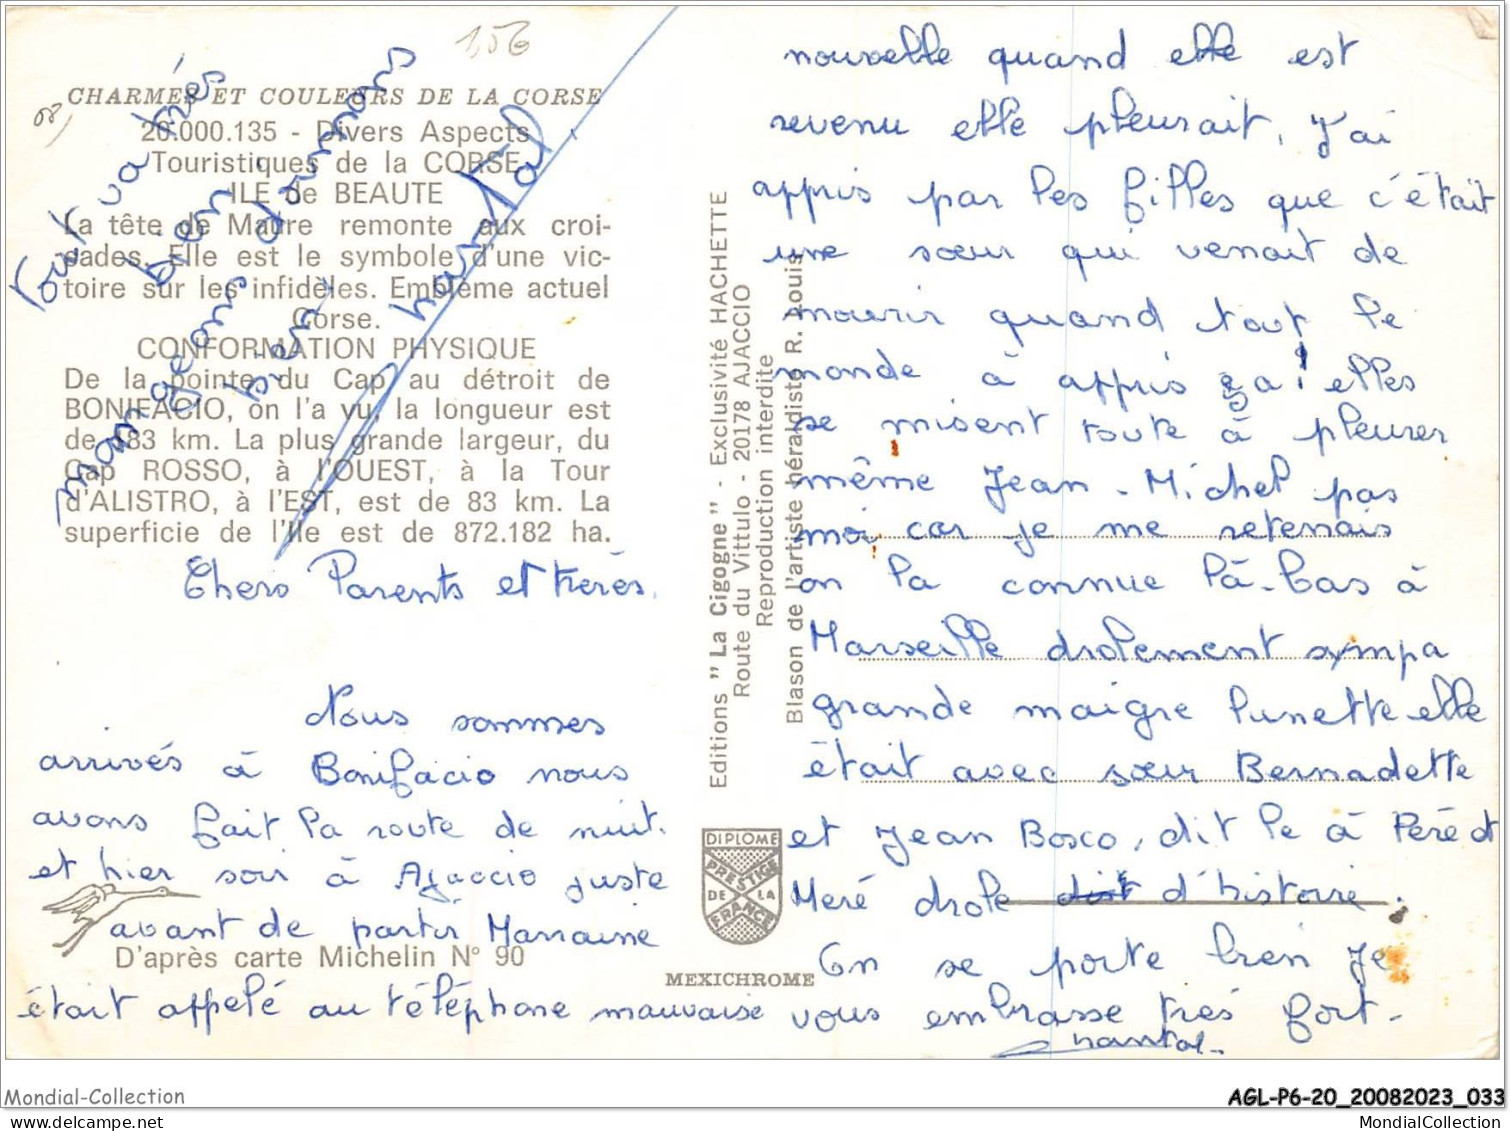 156
CHARMES ET COULEURS DE LA CORSE
20.000.135 - Divers Aspects
Touristiques de la CORSE
ILE de BEAUTE
La tête de Maure remonte aux croi-
sades. Elle est le symbole d'une vic-
toire sur les infidèles. Emblème actuel
Corse.
CONFORMATION PHYSIQUE
De la pointe du Cap au détroit de
BONIFACIO, on l'a vu, la longueur est
de 183 km. La plus grande largeur, du
Cap ROSSO, à l'OUEST, à la Tour
d'ALISTRO, à l'EST, est de 83 km. La
superficie de l'Ile est de 872.182 ha.
Tout va très
bien
mangeons dormons
bien.
hantal
Chers Parents et frères.
Nous sommes
arrivés à Bonifacio nous
avons fait la route de nuit.
et hier soir à Ajaccio juste
avant de partir Marraine
D'après carte Michelin N° 90
était appelé au téléphone mauvaise
Editions " La Cigogne " - Exclusivité HACHETTE
Route du Vittulo - 20178 AJACCIO
Reproduction interdite
Blason de l'artiste héraldiste R. Louis
DIPLOME
PRESTIGE
DE LA
FRANCE
MEXICHROME
nouvelle quand elle est
revenu elle pleurait, J'ai
appris par les filles que c'était
une sœur qui venait de
mourir quand tout le
monde à appris ça! elles
se misent toute à pleurer
même Jean-Michel pas
moi car je me retenais
on la connue là-bas à
Marseille drolement sympa
grande maigre lunette elle
était avec sœur Bernadette
et Jean Bosco, dit le à Péré et
Meré drole d'histoire.
On se porte bien Je
vous embrasse très fort-
Chantal.
Mondial-Collection
AGL-P6-20_20082023_033
MondialCollection.com